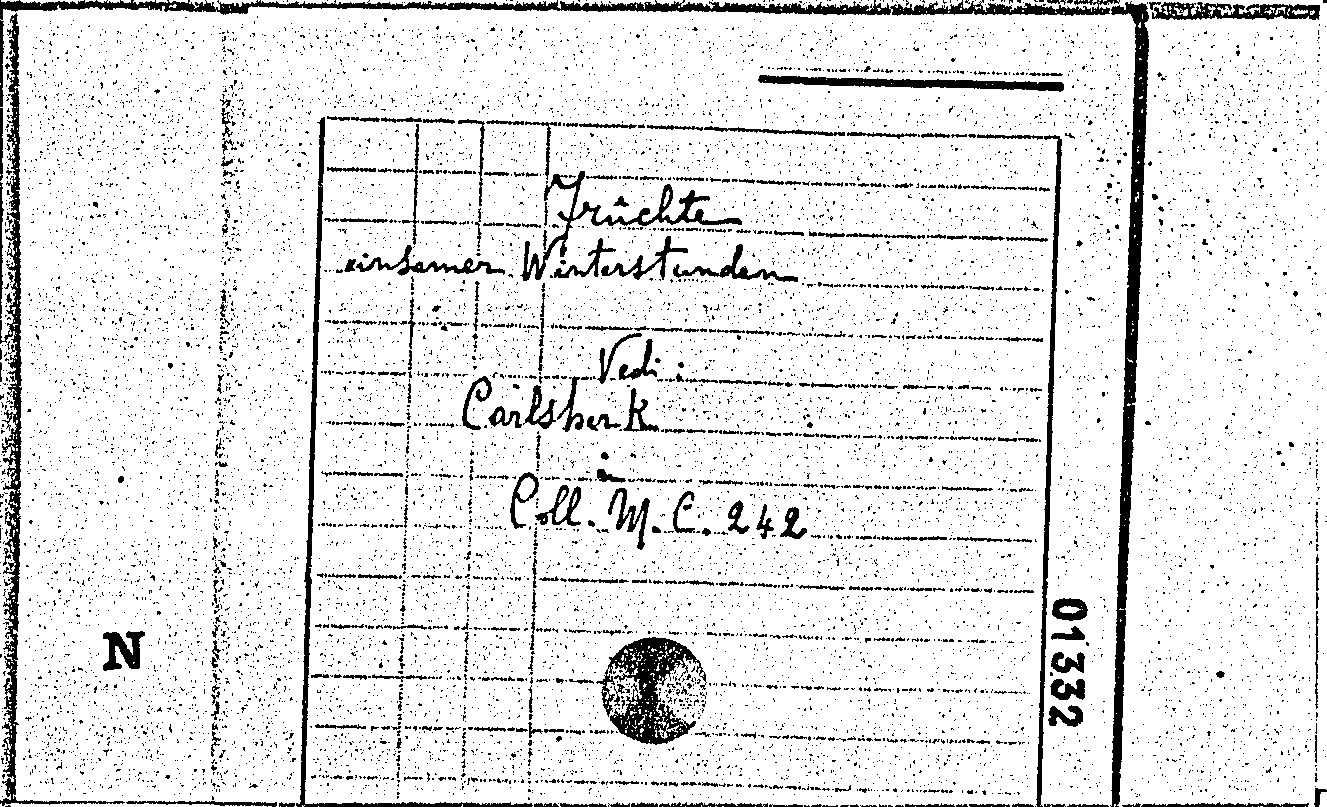 Früchte
einsamer Winterstunden
Vedi:
Carlsberk
Coll. M. C. 242
N
01332